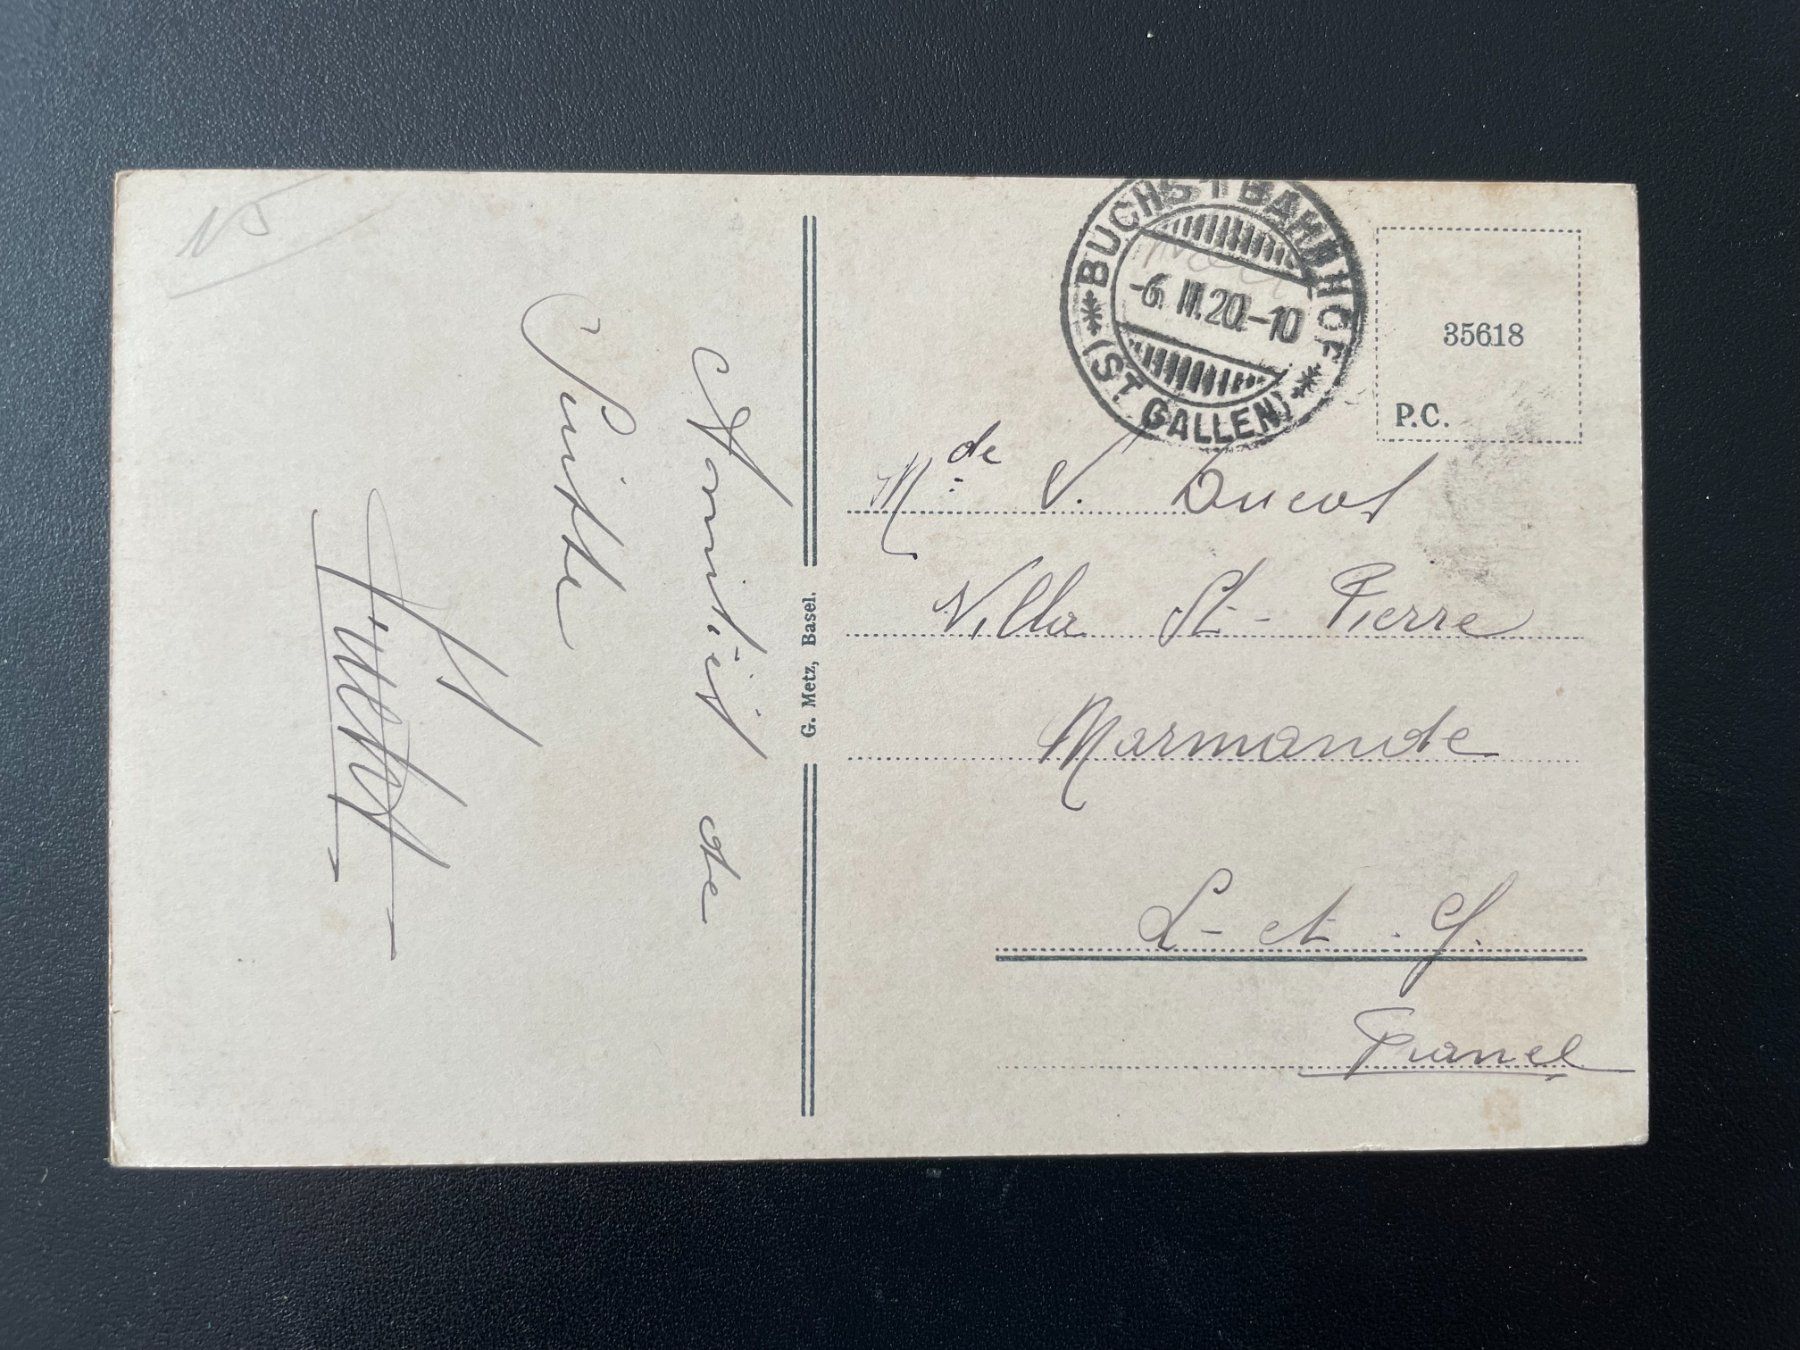 15
Amitié de
Suisse
G. Metz, Basel.
BUCHS 1 BAHNHOF
-6. III. 20.-10
(ST GALLEN)
35618
P.C.
Mde V. Ducos
Villa St-Pierre
Marmande
L- et -G.
France